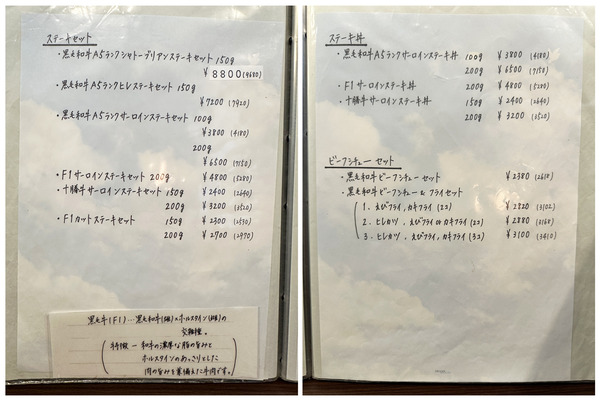 ステーキセット
・黒毛和牛A5ランクシャトーブリアンステーキセット 150g
¥8800(9680)
・黒毛和牛A5ランクヒレステーキセット 150g
¥7200(7920)
・黒毛和牛A5ランクサーロインステーキセット 100g
¥3800(4180)
200g
¥6500(7150)
・F1サーロインステーキセット 200g ¥4800(5280)
・十勝牛サーロインステーキセット 150g ¥2400(2640)
200g ¥3200(3520)
・F1カットステーキセット 150g ¥2300(2530)
200g ¥2700(2970)
黒毛牛(F1)…黒毛和牛(雄)×ホルスタイン(雌)の
交雑種。
特徴ー和牛の濃厚な脂の旨みと
ホルスタインのあっさりとした
肉の旨みを兼備えた牛肉です。
ステーキ丼
・黒毛和牛A5ランクサーロインステーキ丼 100g ¥3800(4180)
200g ¥6500(7150)
・F1サーロインステーキ丼 200g ¥4800(5280)
・十勝牛サーロインステーキ丼 150g ¥2400(2640)
200g ¥3200(3520)
ビーフシチューセット
・黒毛和牛ビーフシチューセット ¥2380(2618)
・黒毛和牛ビーフシチュー&フライセット
1. えびフライ,カキフライ(2コ) ¥2820(3102)
2. ヒレカツ,えびフライorカキフライ(2コ) ¥2880(3168)
3. ヒレカツ,えびフライ,カキフライ(3コ) ¥3100(3410)